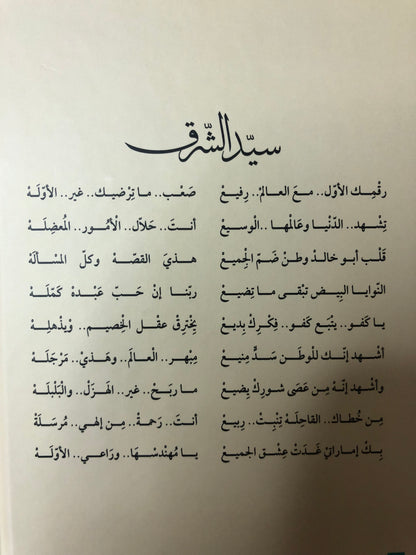 سيّد الشّرق
رقْمِـك الأوّل.. معَ العالمْ.. رفِيـعْ صَعْـب.. ما تِرْضِيـك.. غير.. الأوّلَـهْ
تِشْهد.. الدّنْيـا وعَالمْهـا.. الْوسِيـعْ أنـتَ.. حَلاّل.. الْأمُـور.. الْمُعضِلَـهْ
قَلْب أبو خالدْ وطنْ ضَمّ الْجمِيـعْ هـذيْ القصّـهْ وكـلّ المسْـألهْ
النّوايـا البِيـض تبْقـى مـا تِضيـعْ ربّنـا إنْ حَـبّ عَبْـدهْ كَمّـلَهْ
يا كَفـو.. يتْبَـع كَفـو.. فِكْـركْ بدِيـعْ يخْتِرقْ عقْـل الْخصِيـم.. ويْذهلِـهْ
أشْهد إنّـك للْوطـنْ سَـدٍّ منِيـعْ مِبْهـر.. الْعالَـمْ.. وهَـذيْ.. مَرْجَلَـهْ
وأشْهـد إنّـهْ مِـن عَصَى شوركْ يضِيعْ ما ربَـحْ.. غير.. الهَزلْ.. والْبَلْبلَـهْ
مِن خْطاك.. القاحِلَـهْ تِنْبِـتْ.. ربِيـعْ أنتَ.. رَحمهْ.. مِن إلهِي.. مُرسَلَهْ
بِـكْ إماراتيْ غَـدَتْ عِشْـق الجميـعْ يـا مُهنْدسْهـا.. وراعِـي.. الأوّلَـهْ